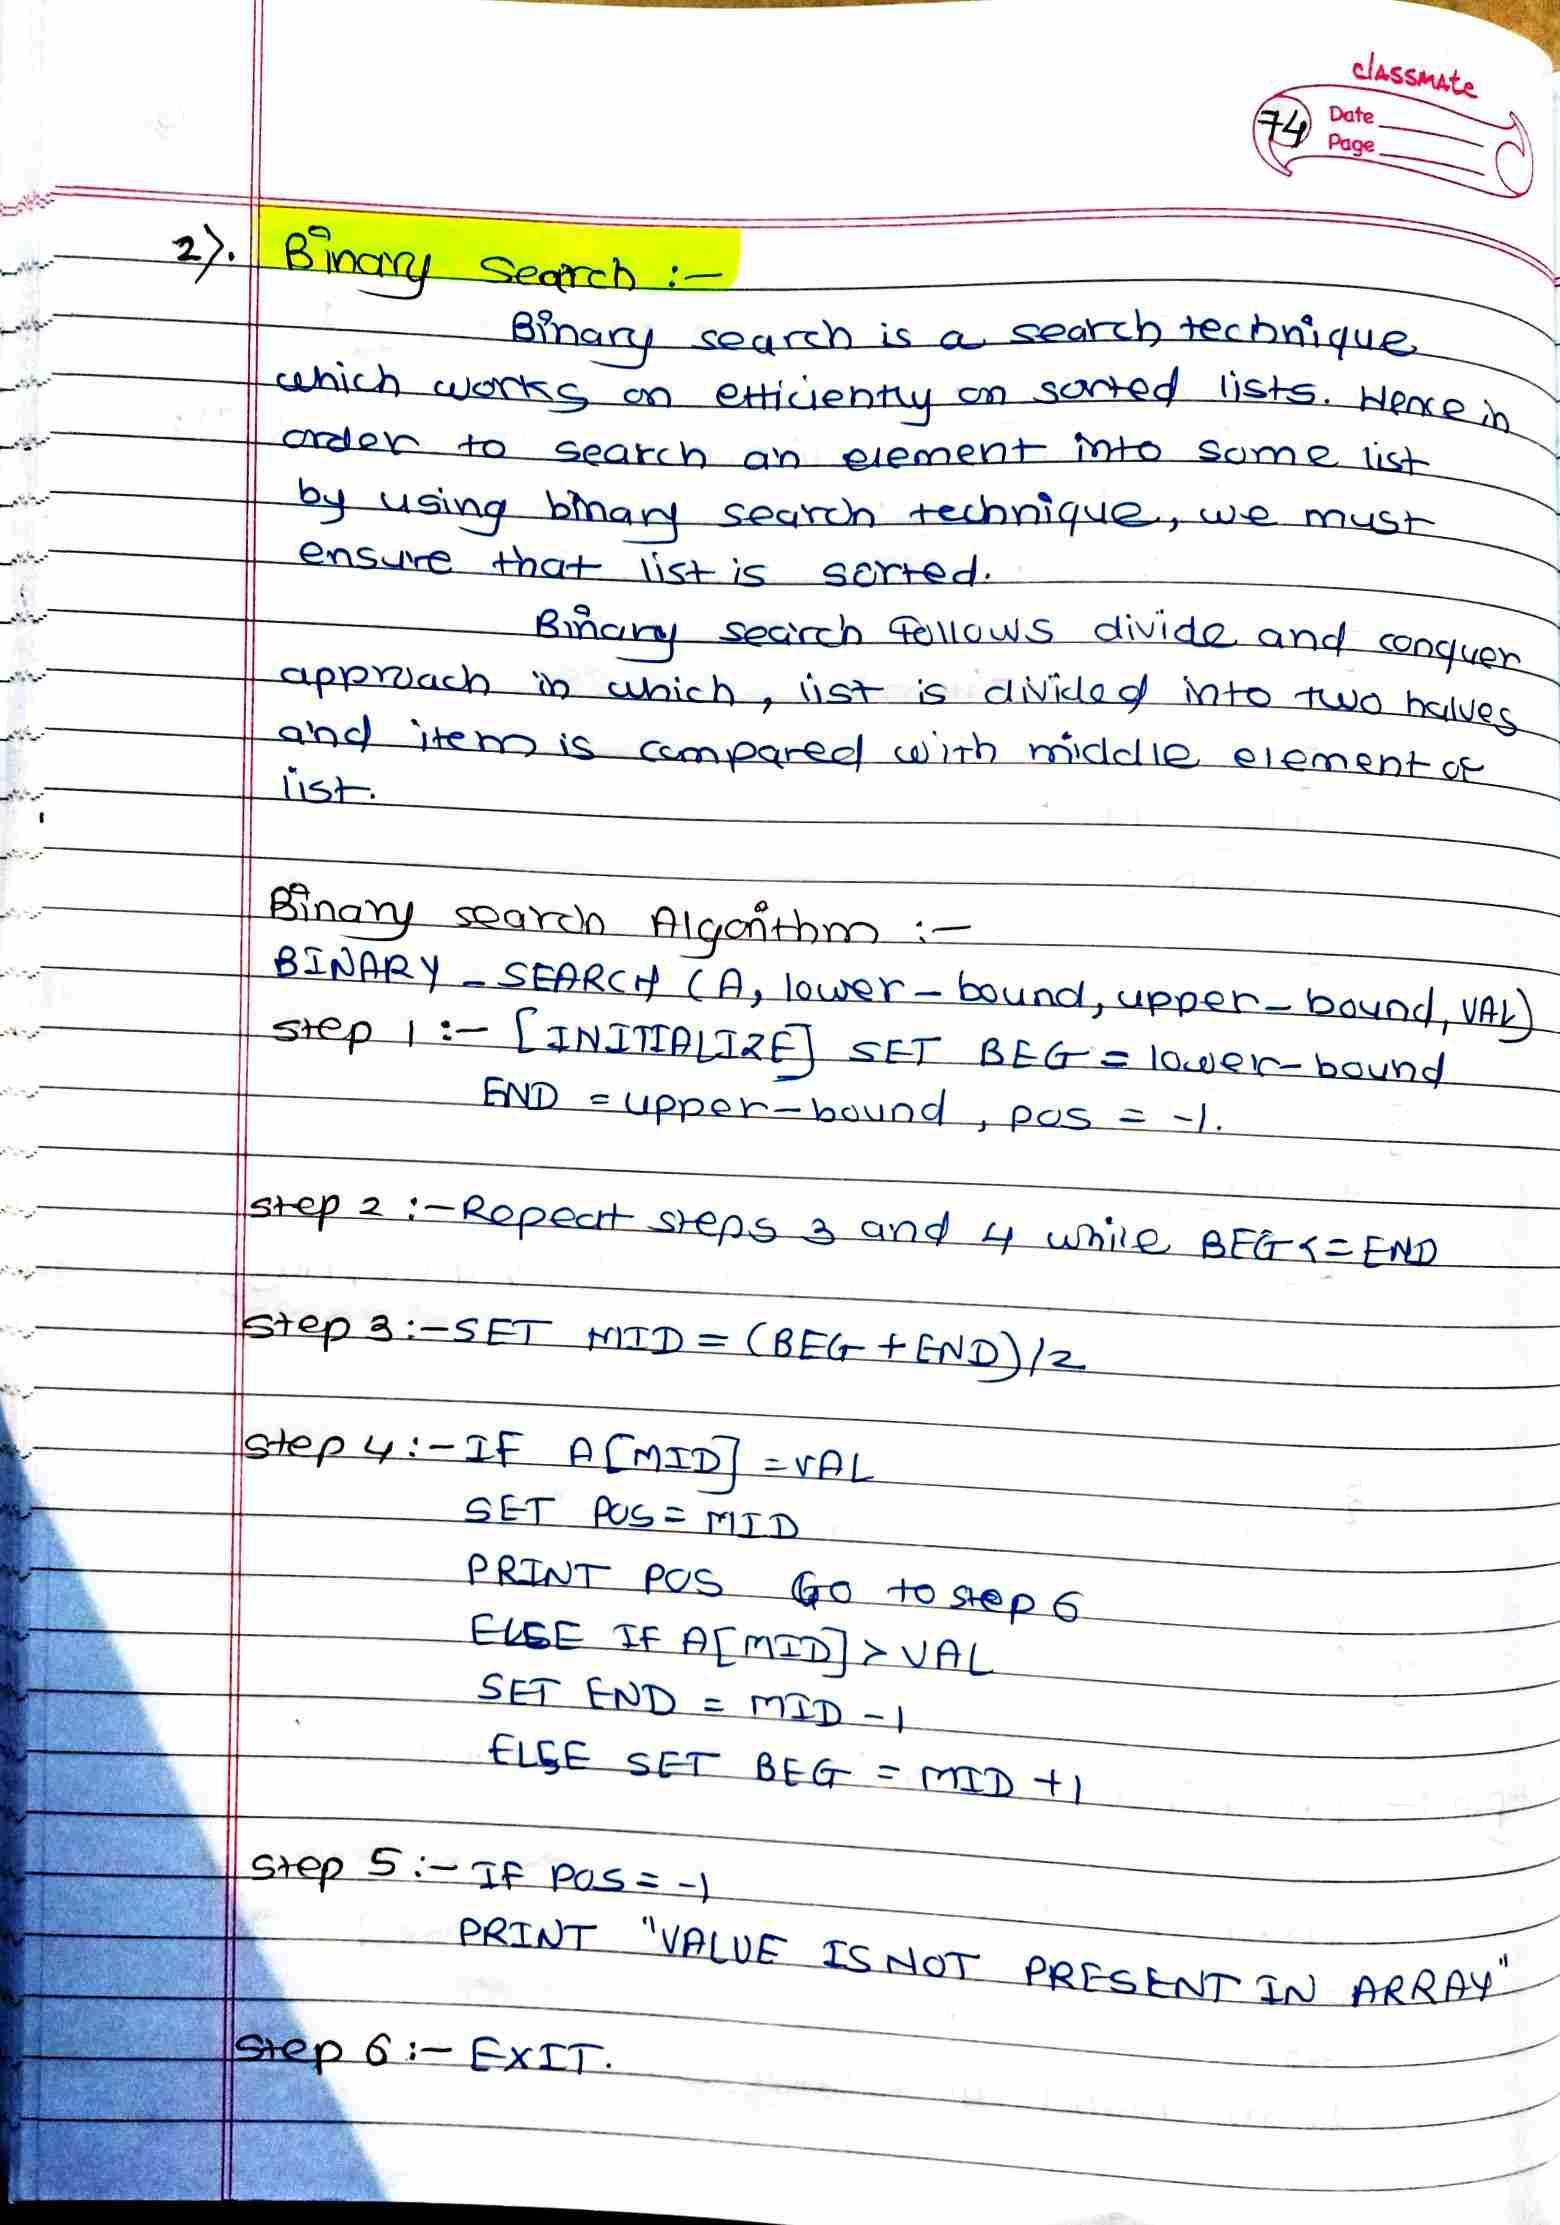 classmate
74
Date
Page
2). Binary Search :-
Binary search is a search technique
which works on efficiently on sorted lists. Hence in
order to search an element into some list
by using binary search technique, we must
ensure that list is sorted.
Binary search follows divide and conquer
approach in which, list is divided into two halves
and item is compared with middle element of
list.
Binary search Algorithm :-
BINARY - SEARCH (A, lower-bound, upper-bound, VAL)
step 1 :- [INITIALIZE] SET BEG = lower-bound
END = upper-bound, pos = -1.
step 2 :- Repeat steps 3 and 4 while BEG <= END
step 3 :- SET MID = (BEG + END)/2
step 4 :- IF A[MID] = VAL
SET POS = MID
PRINT POS Go to step 6
ELSE IF A[MID] > VAL
SET END = MID - 1
ELSE SET BEG = MID + 1
step 5 :- IF POS = -1
PRINT "VALUE IS NOT PRESENT IN ARRAY"
step 6 :- EXIT.